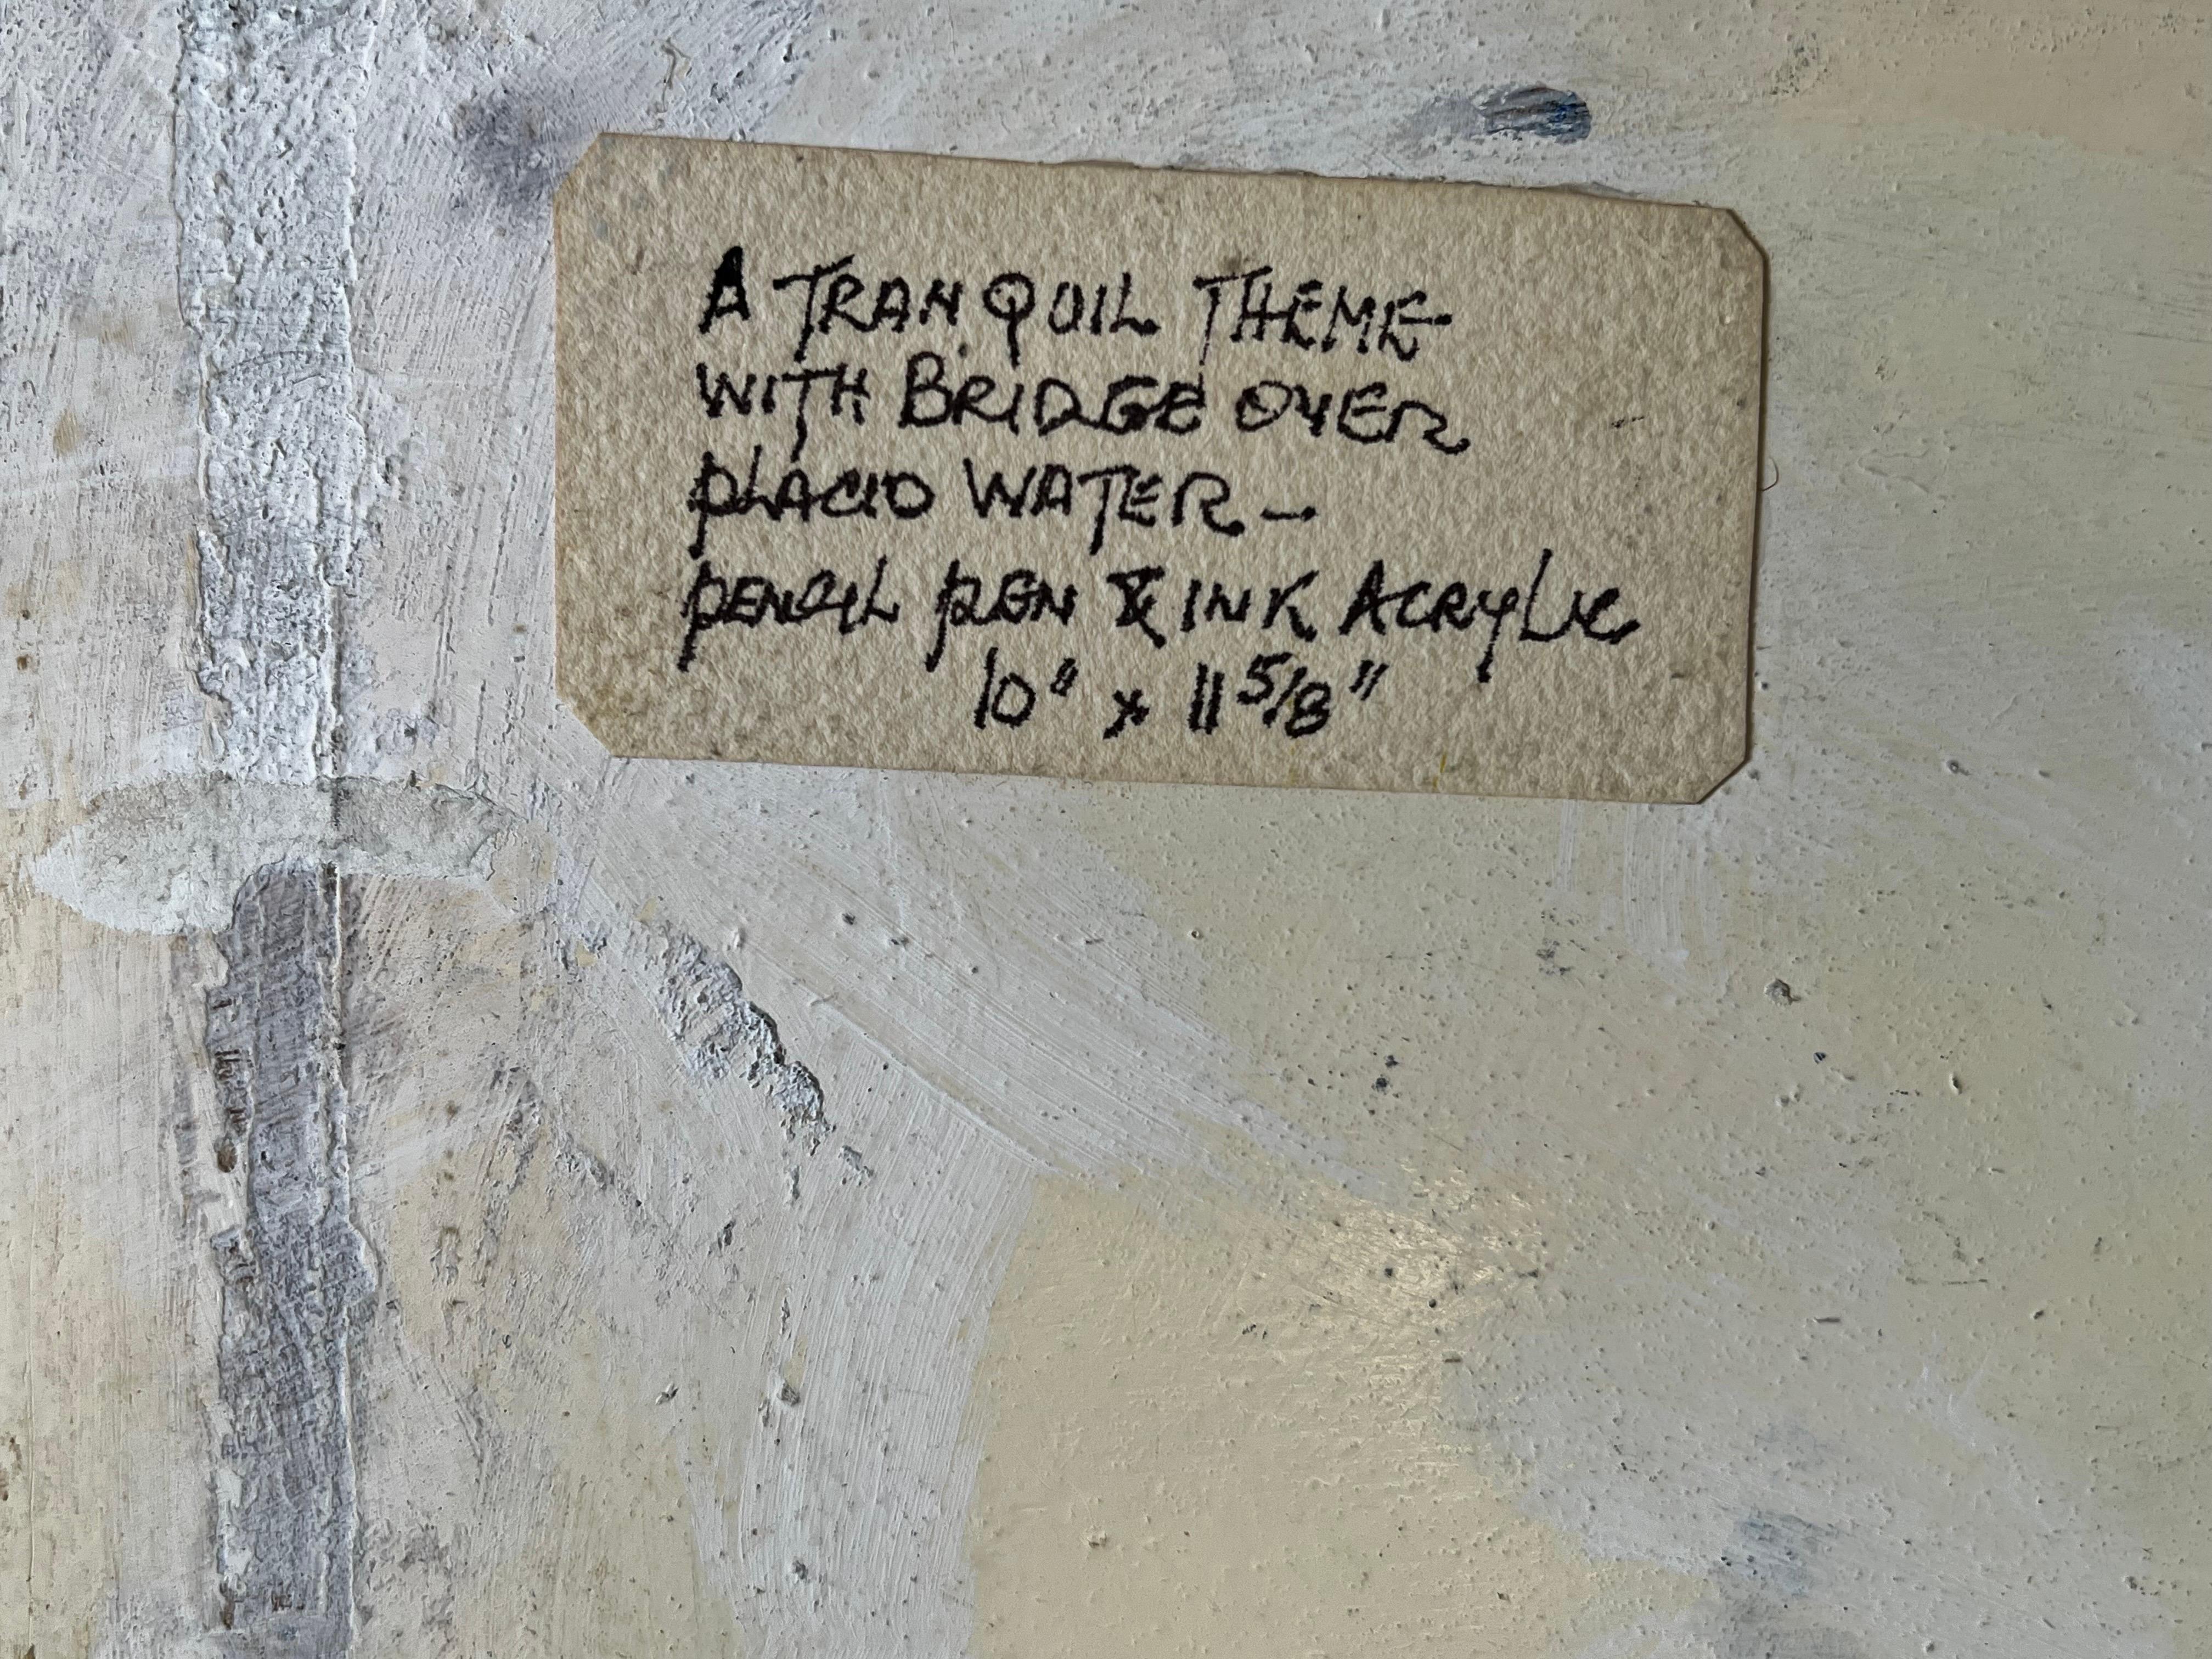 A TRANQUIL THEME
WITH BRIDGE OVER
PLACID WATER —
PENCIL PEN & INK ACRYLIC
10" x 11 5/8"